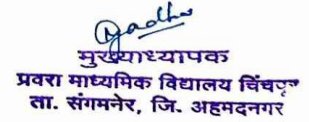 मुख्याध्यापक
प्रवरा माध्यमिक विद्यालय चिंचपूर
ता. संगमनेर, जि. अहमदनगर